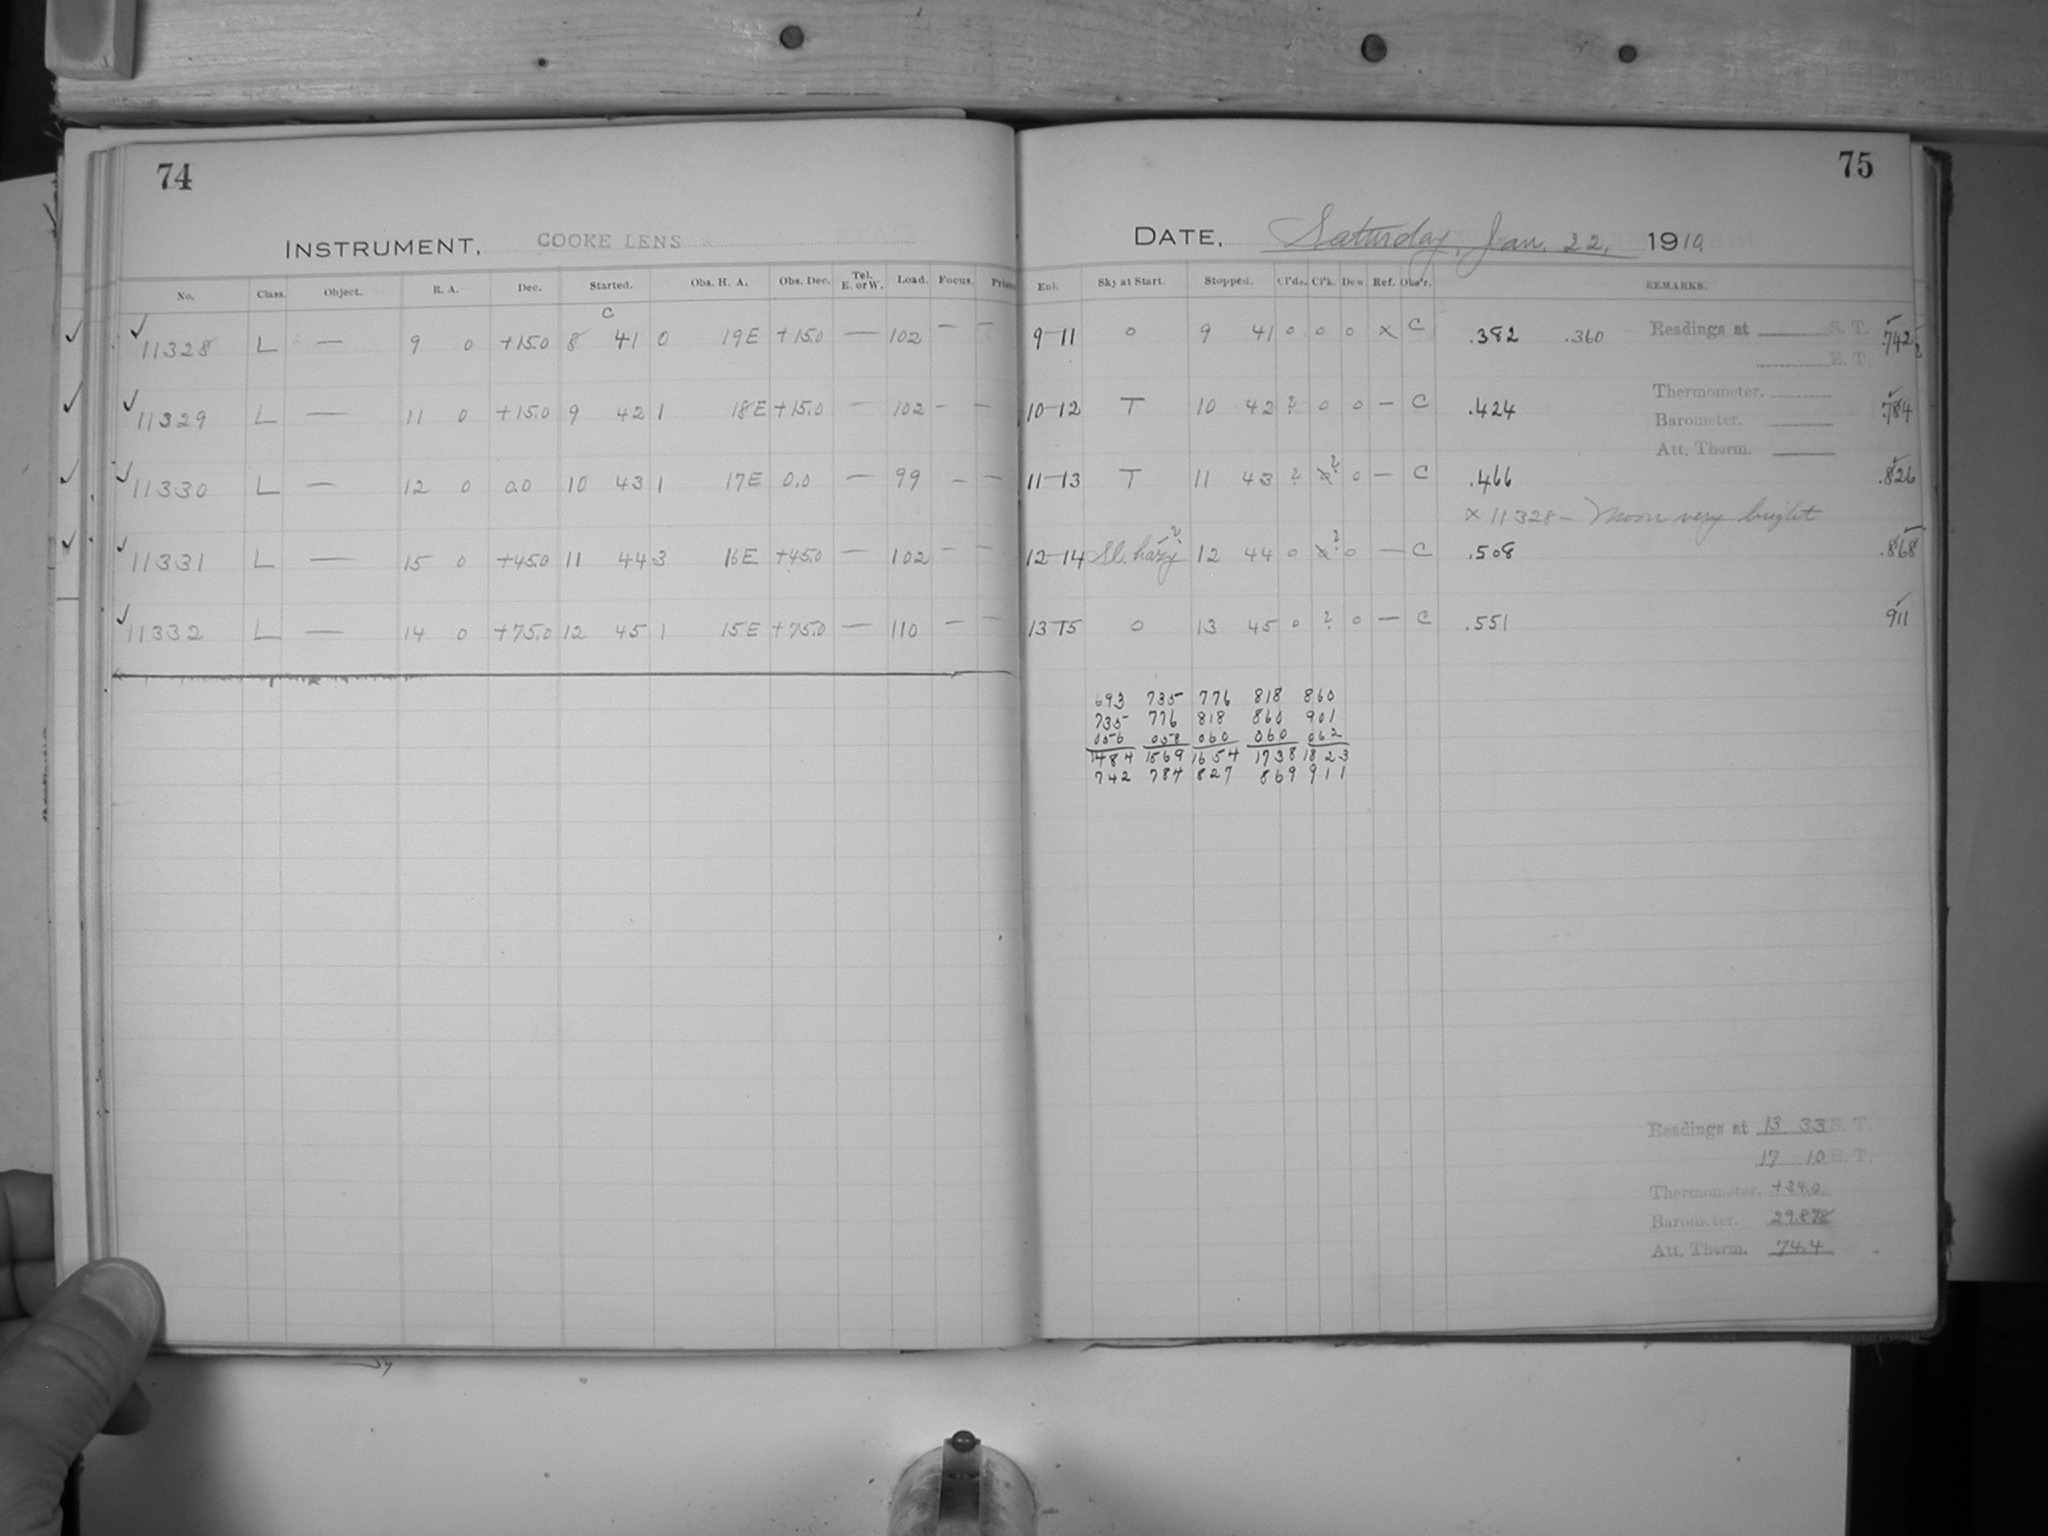 74
INSTRUMENT, COOKE LENS
No. Class. Object. R. A. Dec. Started. Obs. H. A. Obs. Dec. Tel. E. or W. Load. Focus. Prism
C
✓ ✓ 11328 L — 9 0 +15.0 8 41 0 19E +15.0 — 102 — —
✓ ✓ 11329 L — 11 0 +15.0 9 42 1 18E +15.0 — 102 — —
✓ ✓ 11330 L — 12 0 0.0 10 43 1 17E 0.0 — 99 — —
✓ ✓ 11331 L — 15 0 +45.0 11 44 3 16E +45.0 — 102 — —
✓ 11332 L — 14 0 +75.0 12 45 1 15E +75.0 — 110 — —
75
DATE, Saturday, Jan. 22, 1910
Sky at Start. Stopped. Cl'ds. Cl'k. Dew Ref. Obs'r. REMARKS.
9–11 0 9 41 0 0 0 x C .382 .360 Readings at S. T. .742
E. T.
Thermometer.
10–12 T 10 42 ? 0 0 — C .424 .784
Barometer.
Att. Therm.
11–13 T 11 43 ? x? 0 — C .466 .826
x 11328 – Moon very bright
12–14 Sl. hazy? 12 44 0 x? 0 — C .508 .868
13–15 0 13 45 0 ? 0 — C .551 911
693 735 776 818 860
735 776 818 860 901
056 058 060 060 062
1484 1569 1654 1738 1823
742 784 827 869 911
Readings at 13 33 S. T.
17 10 E. T.
Thermometer. +34.0
Barometer. 29.878
Att. Therm. 74.4